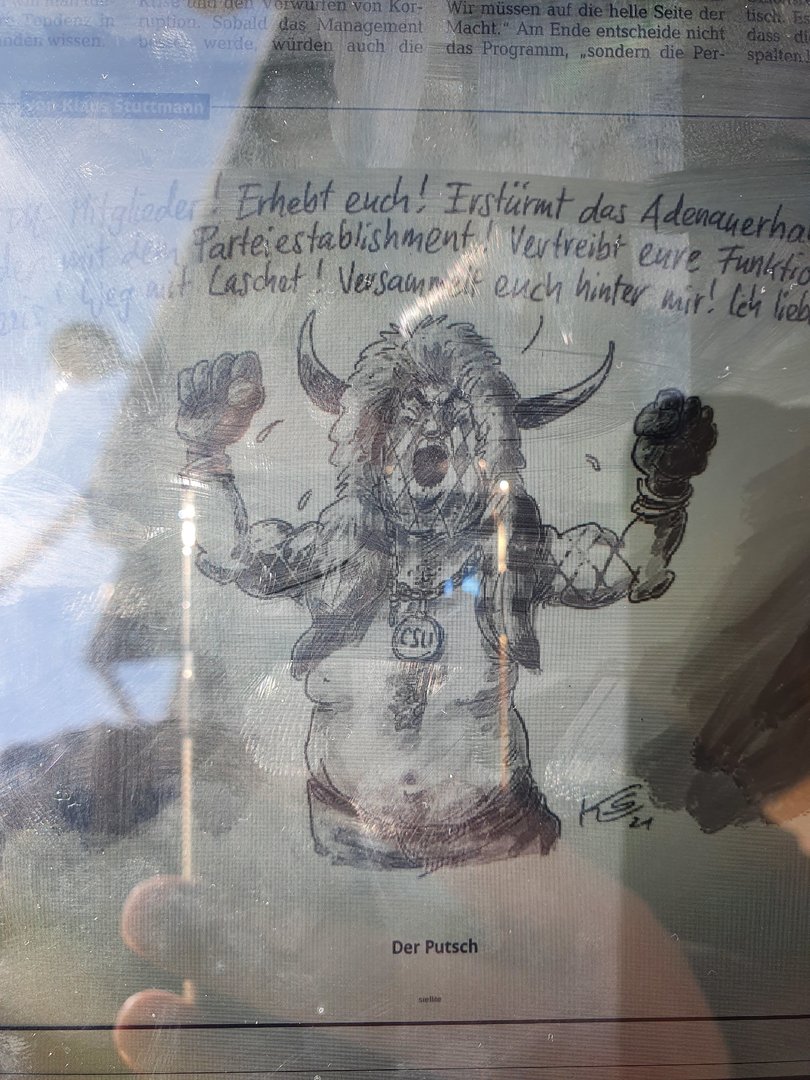 ruption. Sobald das Management
werde, würden auch die
Wir müssen auf die helle Seite der
Macht.“ Am Ende entscheide nicht
das Programm, „sondern die Per-
dass
spalten.
von Klaus Stuttmann
Mitglieder! Erhebt euch! Erstürmt das Adenauerha
mit dem Parteiestablishment! Vertreibt eure Funktio
Weg mit Laschet! Versammelt euch hinter mir! Ich lieb
CSU
KS 21
Der Putsch
siellte